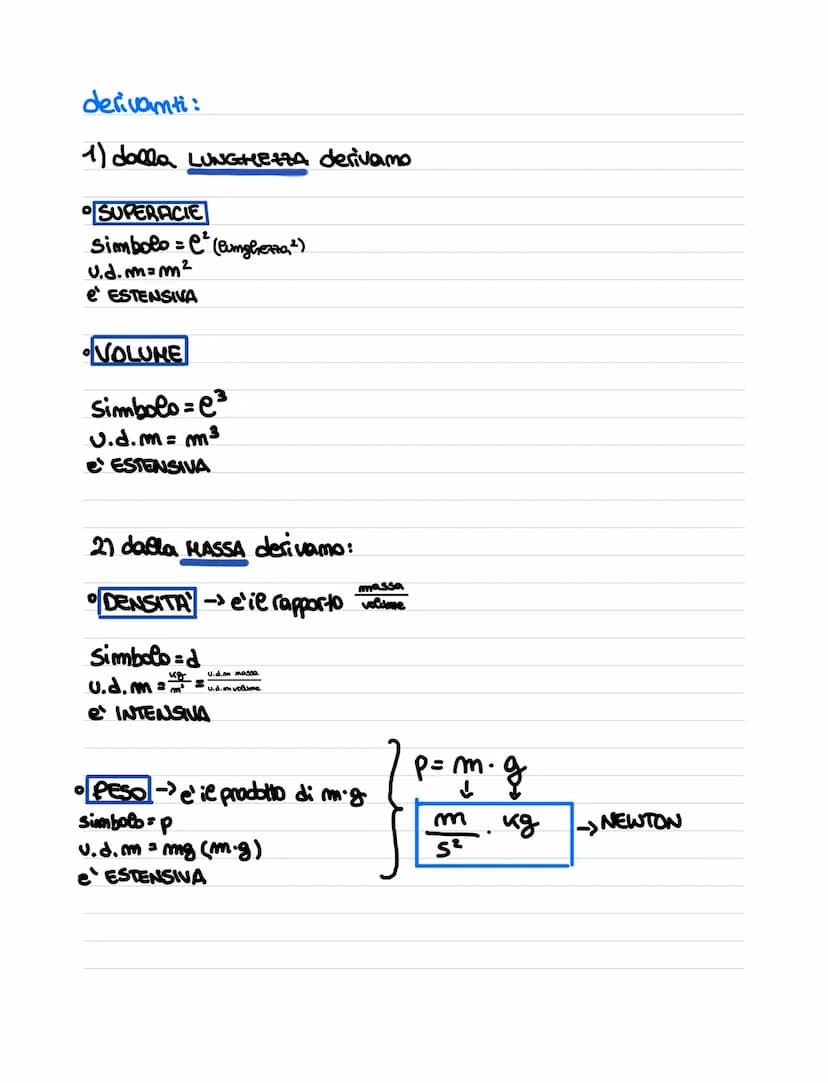 derivanti:
1) dalla LUNGHEZZA derivano
° SUPERFICIE
Simbolo = l² (lunghezza²)
U.d.m = m²
e' ESTENSIVA
° VOLUME
Simbolo = l³
U.d.m = m³
e' ESTENSIVA
2) dalla MASSA derivano:
° DENSITA' → e' il rapporto massa/volume
Simbolo = d
U.d.m = kg/m³ = u.d.m massa/u.d.m volume
e' INTENSIVA
° PESO → e' il prodotto di m·g
simbolo = p
U.d.m = mg (m·g)
e' ESTENSIVA
p = m · g
↓ ↓
m/s² · kg → NEWTON